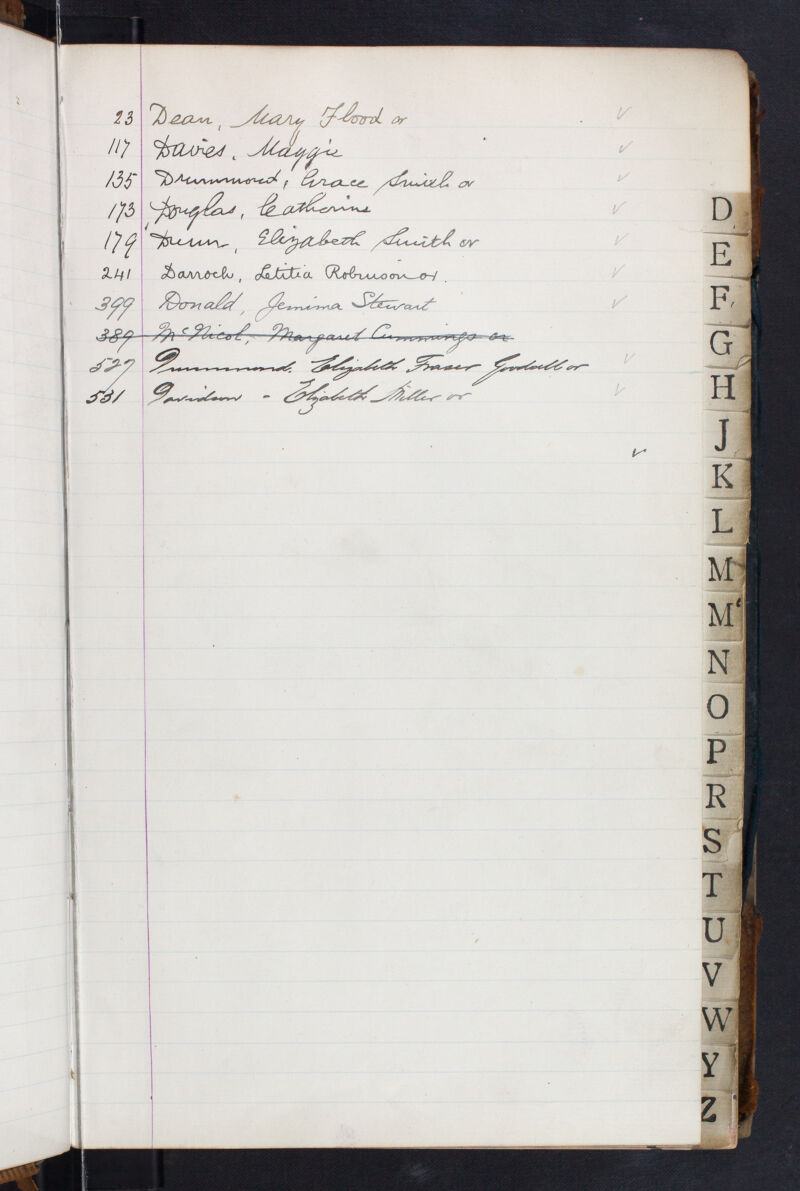 23 Dean, Mary Flood or ✓
117 Davies, Maggie ✓
135 Drummond, Grace Smith or ✓
173 Douglas, Catherine ✓
179 Dunn, Elizabeth Smith or ✓
241 Darroch, Letitia Robinson or. ✓
399 Donald, Jemima Stewart ✓
389 McNicol, Margaret Cummings or
527 Drummond. Elizabeth Fraser Goodall or ✓
531 Davidson - Elizabeth Miller or ✓
✓
D
E
F
G
H
J
K
L
M
Mc
N
O
P
R
S
T
U
V
W
Y
Z